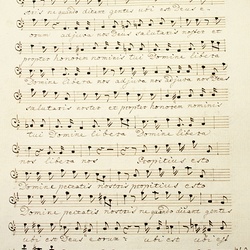 stris ne quando dicant gentes ubi est Deus e-
orum adjuva nos Deus salutaris noster et
propter honorem nominis tui Domine libera
Domine libera nos adjuva nos adjuva nos Deus
salutaris noster et propter honorem nominis
tui Domine libera Domine libera
nos libera nos Propitius esto
Domine peccatis nostris propitius esto
Domine peccatis nostris ne quando dicant gentes
ubi est Deus eorum ubi est ubi est